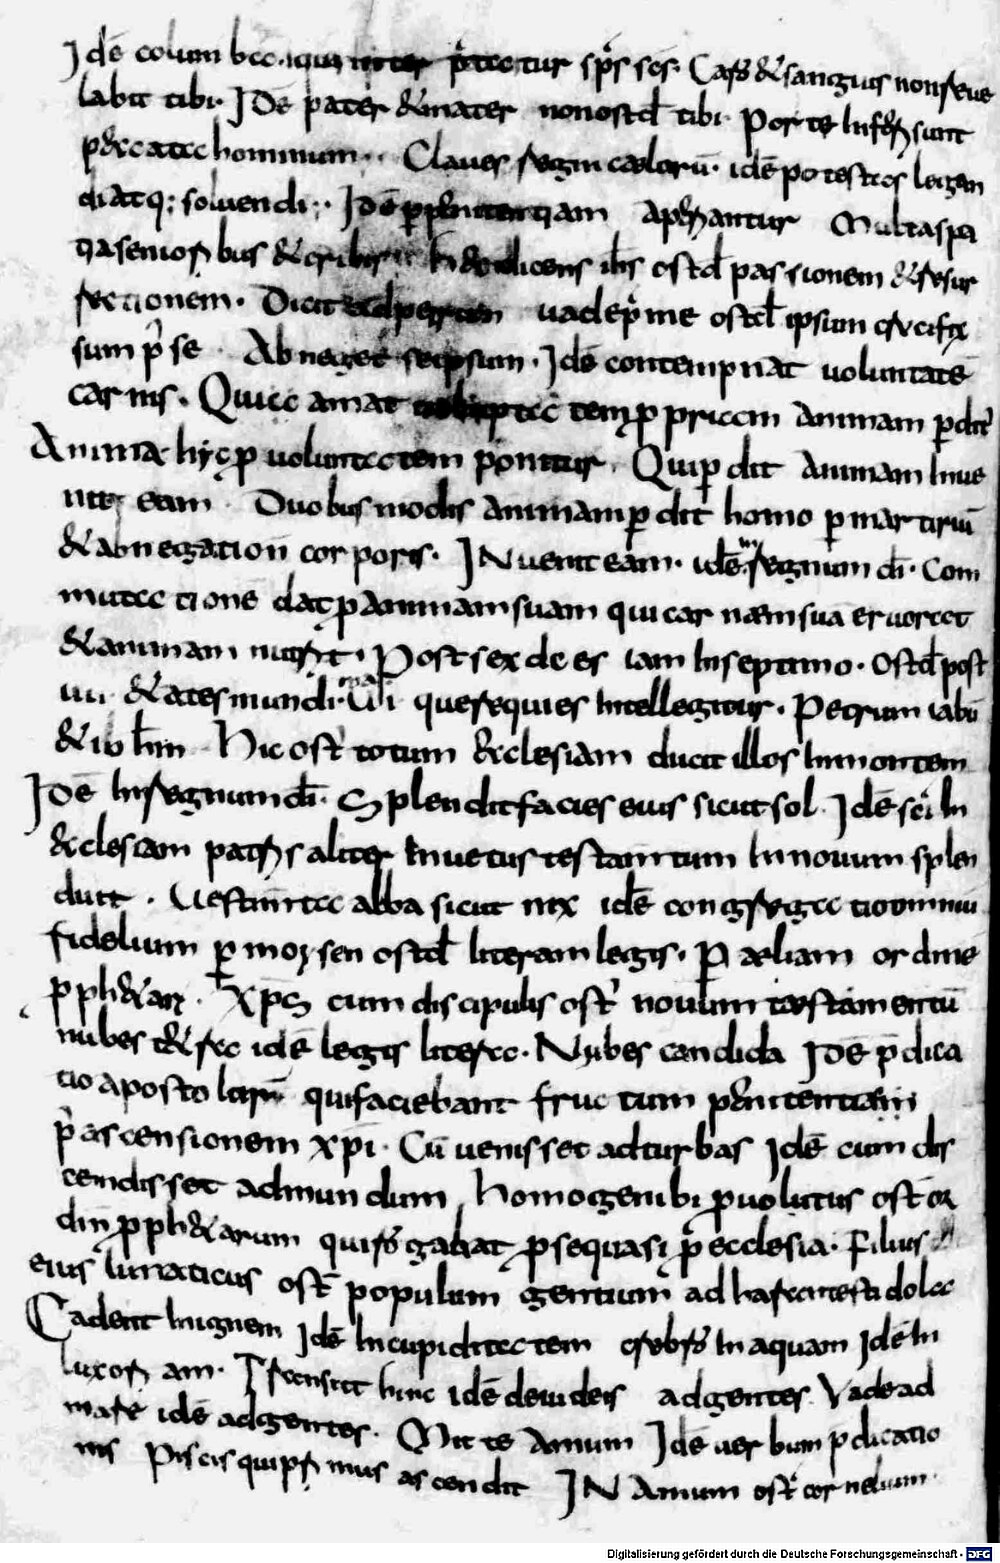 Idē columbae. iqua inter p̄tetur sp̄s scs. Caro & sanguis nonreue
labit tibi. Idē pater & mater nonostd̄ tibi. Porte Inferi sunt
peccata hominum. Claues regni caeloru̅. idē potestas ligan
diatq; soluendi. Idē p penitentiam aperiantur Multaspa
tiasenioribus & scribis ihs ostd̄ passionem & resur
rectionem. Dicit ad petrum uadeprme ostd̄ ipsum crucifix
sum p̄ se Abneget seipsum. Idē contempnat uoluntatē
carnis. Quia amat uoluptate temp animam p̄dit
Anima hic pro uoluntatem ponitur. Quip̄dit animam Inue
niet eam Duobus modis animam p̄dit homo p̄ martiriū
& abnegation corporis. INuenit eam. idē in regnum d̄i. Com
mutationē dat pro animam suam qui carnem suā euortet
& animam nutrit. Post sex dies iam Inseptimo. ostd̄ post
ui & ates mundi. uii querequies Intellegitur. Petrum iabū
& ioh̄n Hic ost̄ totum & clesiam ducit illos Inmontem
Idē Inregnum d̄i. Splendit facies eius sicut sol. Idē sc̄i In
& clesiam patris aliter Inuetus testamtum Innouum splen
duit. Uestimta alba sicut nix idē congregatio omniū
fidelium p̄ moysen ostd̄ literam legis. P̄ aeliam ordinē
pph&arū. Xp̄s cum discipulis ost̄ nouum testamentū
nubes t&ra idē legis litera. Nubes candida Idē p̄dica
tio apostolorū quifaciebant fructum penitentiam
p̄ ascensionem xp̄i. Cū uenisset adturbas Idē cum dis
cendisset admundum homogenibi prouolutus ost̄ or
din pph&arum quirogabat p se quasi p̄ ecclesia. Filius
eius lunaticus ost̄ populum gentium
Cadent Inignem Idē Incupiditatem crebro In aquam Idē In
luxoriam. Transiit hinc idē deiudeis adgentes. Vade ad
mare idē adgentes. Mitte amum Idē uerbum p̄dicatio
nis Piscis quiprimus ascendit IN amum ost̄ cornelium